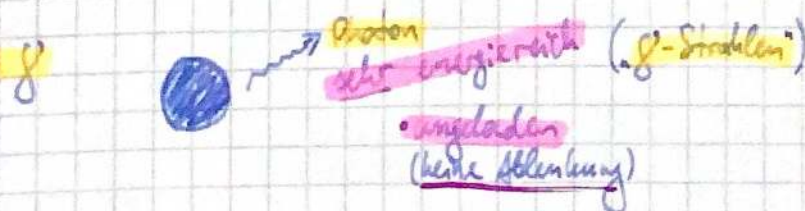 γ
Photon
sehr energiereich („γ-Strahlen“)
• ungeladen
(keine Ablenkung)